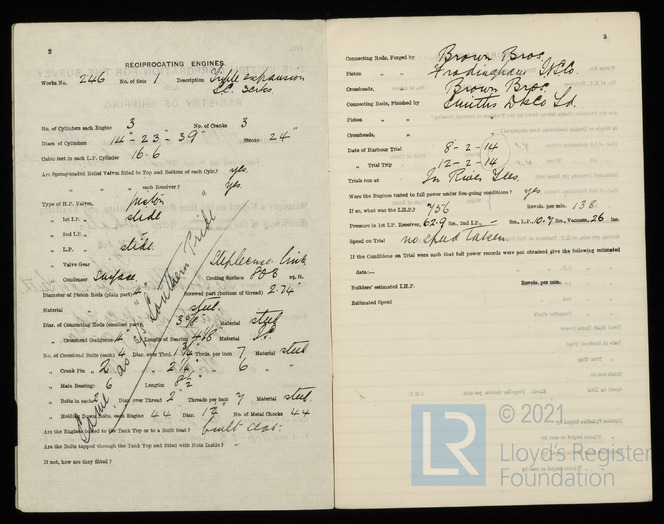 2
RECIPROCATING ENGINES.
Works No. 246 No. of Sets 1 Description Triple expansion
S.C. 3 cyls
No. of Cylinders each Engine 3 No. of Cranks 3
Diars. of Cylinders 14" - 23 - 39" Stroke 24"
Cubic feet in each L.P. Cylinder 16.6
Are Spring-loaded Relief Valves fitted to Top and Bottom of each Cylr.? yes.
" " " each Receiver? yes.
Type of H.P. Valves, piston
" 1st I.P. " slide
" 2nd I.P. "
" L.P. " slide.
" Valve Gear Stephenson link
" Condenser Surface Cooling Surface 808 sq. ft.
Diameter of Piston Rods (plain part) 4" Screwed part (bottom of thread) 2.74"
Material steel.
Diar. of Connecting Rods (smallest part) Material steel
" Crosshead Gudgeons 4" Length of Bearing Material
No. of Crosshead Bolts (each) 4 Diar. over Thrd. 1¾" Thrds. per inch 7 Material steel
" Crank Pin " 2 " 2¼" " 6 "
" Main Bearings 6 Lengths 8½"
" Bolts in each 2 Diar. over Thread 2" Threads per inch 7 Material steel.
" Holding Down Bolts, each Engine 44 Diar. No. of Metal Chocks 44
Are the Engines bolted to the Tank Top or to a Built Seat? built seat.
Are the Bolts tapped through the Tank Top and fitted with Nuts Inside? "
If not, how are they fitted?
Same as "Southern Pride"
3
Connecting Rods, Forged by Brown Bros.
Piston " " Frodingham I&S Co.
Crossheads, " Brown Bros.
Connecting Rods, Finished by Smiths D Co Ld.
Piston " " "
Crossheads, " "
Date of Harbour Trial 8-2-14
" Trial Trip 12-2-14
Trials run at In River Tees.
Were the Engines tested to full power under Sea-going conditions? yes.
If so, what was the I.H.P.? 756 Revols. per min. 138
Pressure in 1st I.P. Receiver, 62.9 lbs., 2nd I.P., — lbs., L.P. 10.7 lbs., Vacuum, 26 ins.
Speed on Trial no speed taken
If the Conditions on Trial were such that full power records were not obtained give the following estimated
data:—
Builders' estimated I.H.P. Revols. per min.
Estimated Speed
LR
© 2021
Lloyd's Register
Foundation